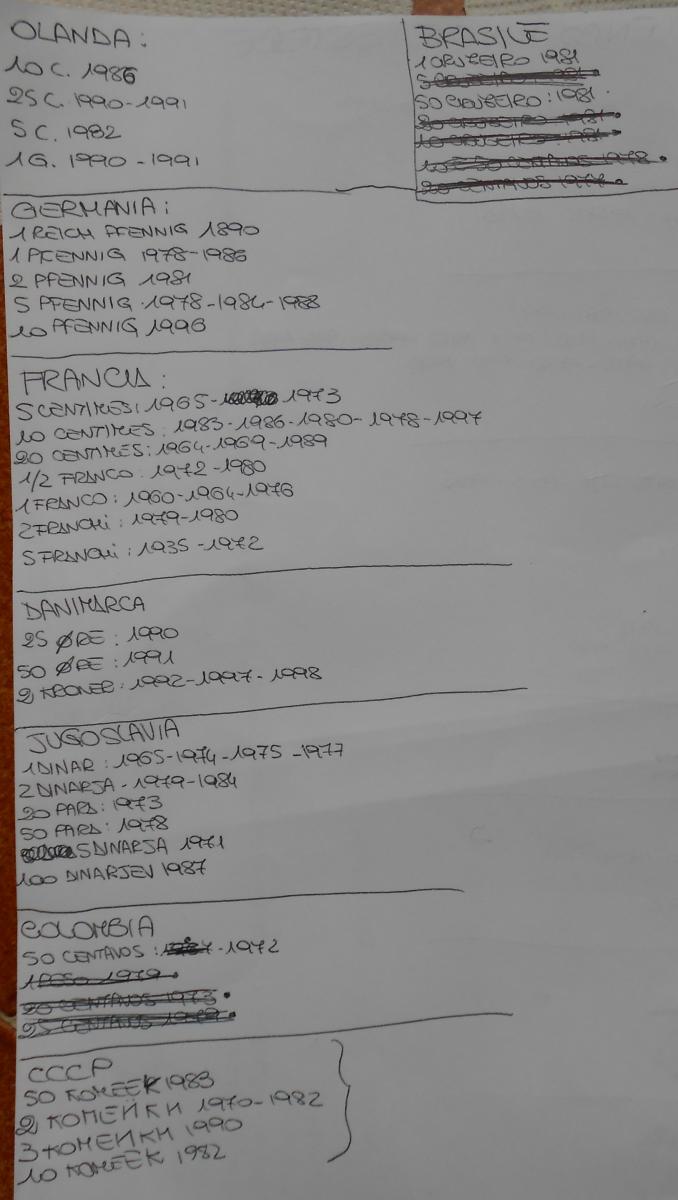 OLANDA:
10 C. 1986
25 C. 1990-1991
5 C. 1982
1G. 1990-1991
BRASILE
1 CRUZEIRO 1981
5 CRUZEIRO 1981
50 CRUZEIRO: 1981
20 CRUZEIRO 1981
10 CRUZEIRO 1981
10 E 50 CENTAVOS 1978
20 CENTAVOS 1977
GERMANIA:
1 REICH PFENNIG 1890
1 PFENNIG 1978-1986
2 PFENNIG 1981
5 PFENNIG 1978-1984-1988
10 PFENNIG 1996
FRANCIA:
5 CENTIMES: 1965- 1973
10 CENTIMES: 1983-1986-1980-1978-1997
20 CENTIMES: 1964-1969-1989
1/2 FRANCO: 1972-1980
1 FRANCO: 1960-1964-1976
2 FRANCHI: 1979-1980
5 FRANCHI: 1935-1972
DANIMARCA
25 ØRE: 1990
50 ØRE: 1991
2 KRONER: 1992-1997-1998
JUGOSLAVIA
1 DINAR: 1965-1974-1975-1977
2 DINARJA-1979-1984
20 PARA: 1973
50 PARA: 1978
5 DINARJA 1971
100 DINARJEV 1987
COLOMBIA
50 CENTAVOS: -1972
1 PESO 1979
20 CENTAVOS 1973
25 CENTAVOS
CCCP
50 КОПЕЕК 1983
2 КОПЕЙКИ 1970-1982
3 КОПЕЙКИ 1990
10 КОПЕЕК 1982